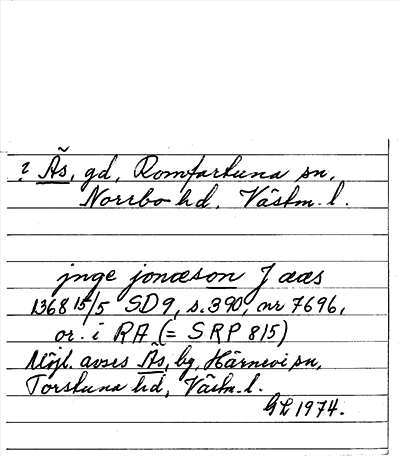 ? Ãs, gd, Romfartuna sn,
Norrbo hd, Västm. l.
jnge jonæson J aas
1368 15/5 SD 9, s. 390, nr 7696,
or. i RA (= SRP 815)
Möjl. avses Ãs, by, Härnevi sn,
Torstuna hd, Västm. l.
GL 1974.